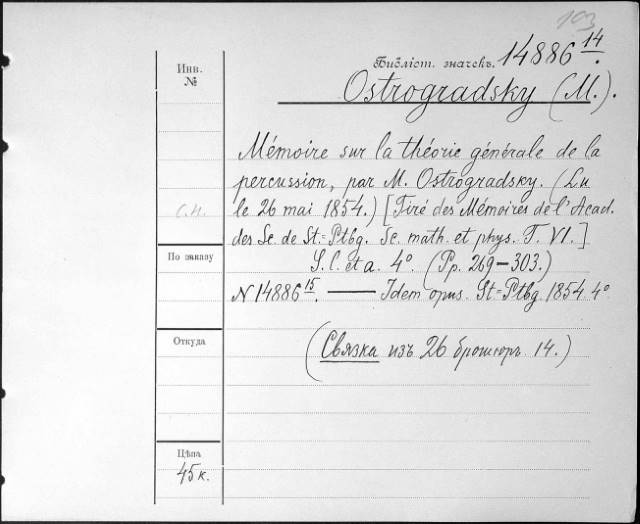 103
Библіот. значекъ. 14886 14.
Инв.
№
Ostrogradsky (M.).
Mémoire sur la théorie générale de la
percussion, par M. Ostrogradsky. (Lu
le 26 mai 1854.) [Tiré des Mémoires de l'Acad.
с.н.
des Sc. de St.=Ptbg. Sc. math. et phys. T. VI.]
По заказу
S. l. et a. 4°. (Pp. 269—303.)
N 14886 15. — Idem opus. St=Ptbg. 1854 4°
Откуда
(Связка изъ 26 брошюръ 14.)
Цѣна
45 к.